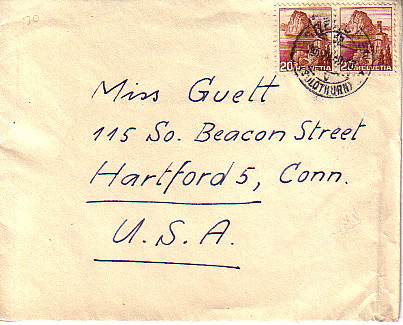 20 HELVETIA HELVETIA 20
(SOLOTHURN)
Miss Guett
115 So. Beacon Street
Hartford 5, Conn.
U.S.A.